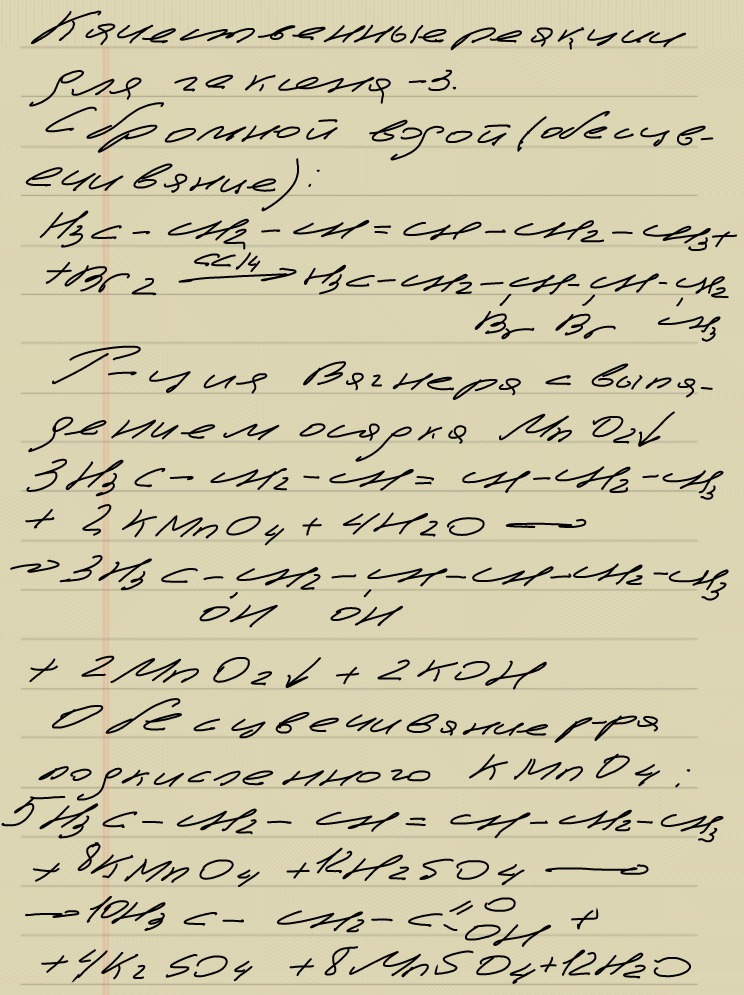 Качественные реакции
для гексена -3.
С бромной водой (обесцв-
ечивание):
H₃C - CH₂ - CH = CH - CH₂ - CH₃ +
+ Br₂ CCl₄ → H₃C - CH₂ - CH - CH - CH₂
Br Br CH₃
Р-ция Вагнера с выпа-
дением осадка MnO₂↓
3H₃C - CH₂ - CH = CH - CH₂ - CH₃
+ 2KMnO₄ + 4H₂O →
→ 3H₃C - CH₂ - CH - CH - CH₂ - CH₃
OH OH
+ 2MnO₂↓ + 2KOH
Обесцвечивание р-ра
подкисленного KMnO₄:
5H₃C - CH₂ - CH = CH - CH₂ - CH₃
+ 8KMnO₄ + 12H₂SO₄ →
→ 10H₃C - CH₂ - C = O +
- OH
+ 4K₂SO₄ + 8MnSO₄ + 12H₂O